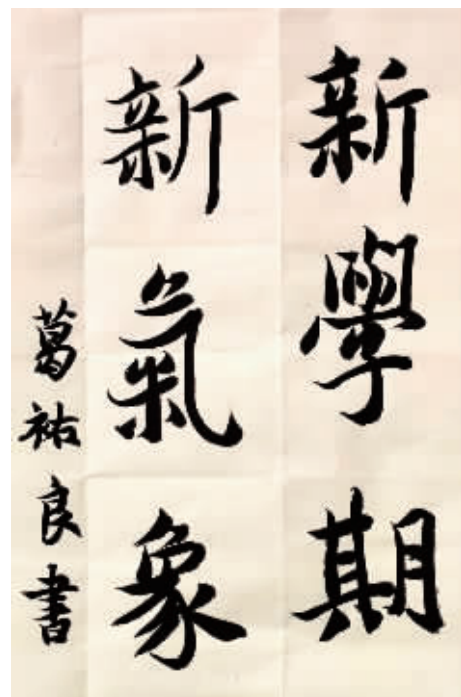 新學期
新氣象
葛祐良書